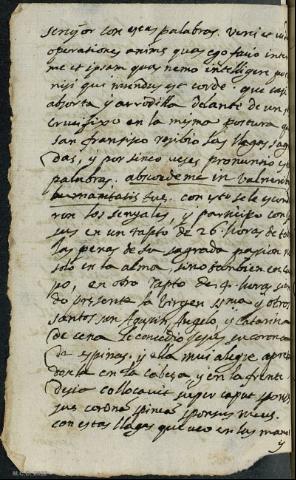 señor con estas palabras. veni et vide
operationes animæ quas ego facio inte
me et ipsam quas nemo intelligere po
nisi qui mundus est corde que casi
absorta y arrodilla delante de un
crucifixo en la mysma postura que
san fransisco resibio las llagas sagra
das, y por sinco veses pronunsio es
palabras. absconde me in vulneribus
humanitatis tuæ. con esto se le escondie
ron los senyales, y partisipo con
sus en un rapto de 26. horas de to
las penas de su sagrada passion no
solo en la alma, sino tambien en el cu
po, en otro rapto de 4. horas sien
do presente la Virgen ssma y otros
santos san Agustin, Angelo, y Catarina
de cena le consedio Jesus su corona
de espinas, y ella mui alegre apre
dosela en la cabesa, y en la frente
desia collocavit super caput
sus corona spinea sponsus meus.
con estas llagas que veo en tus manos
y